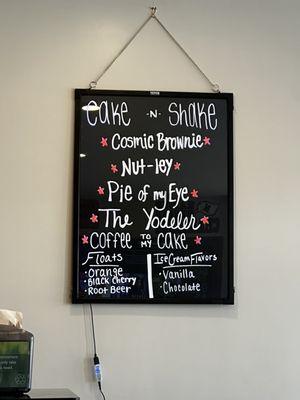 Cake -N- Shake
Cosmic Brownie
Nut-ley
Pie of my Eye
The Yodeler
Coffee TO MY Cake
Floats
Orange
Black Cherry
Root Beer
Ice Cream Flavors
Vanilla
Chocolate